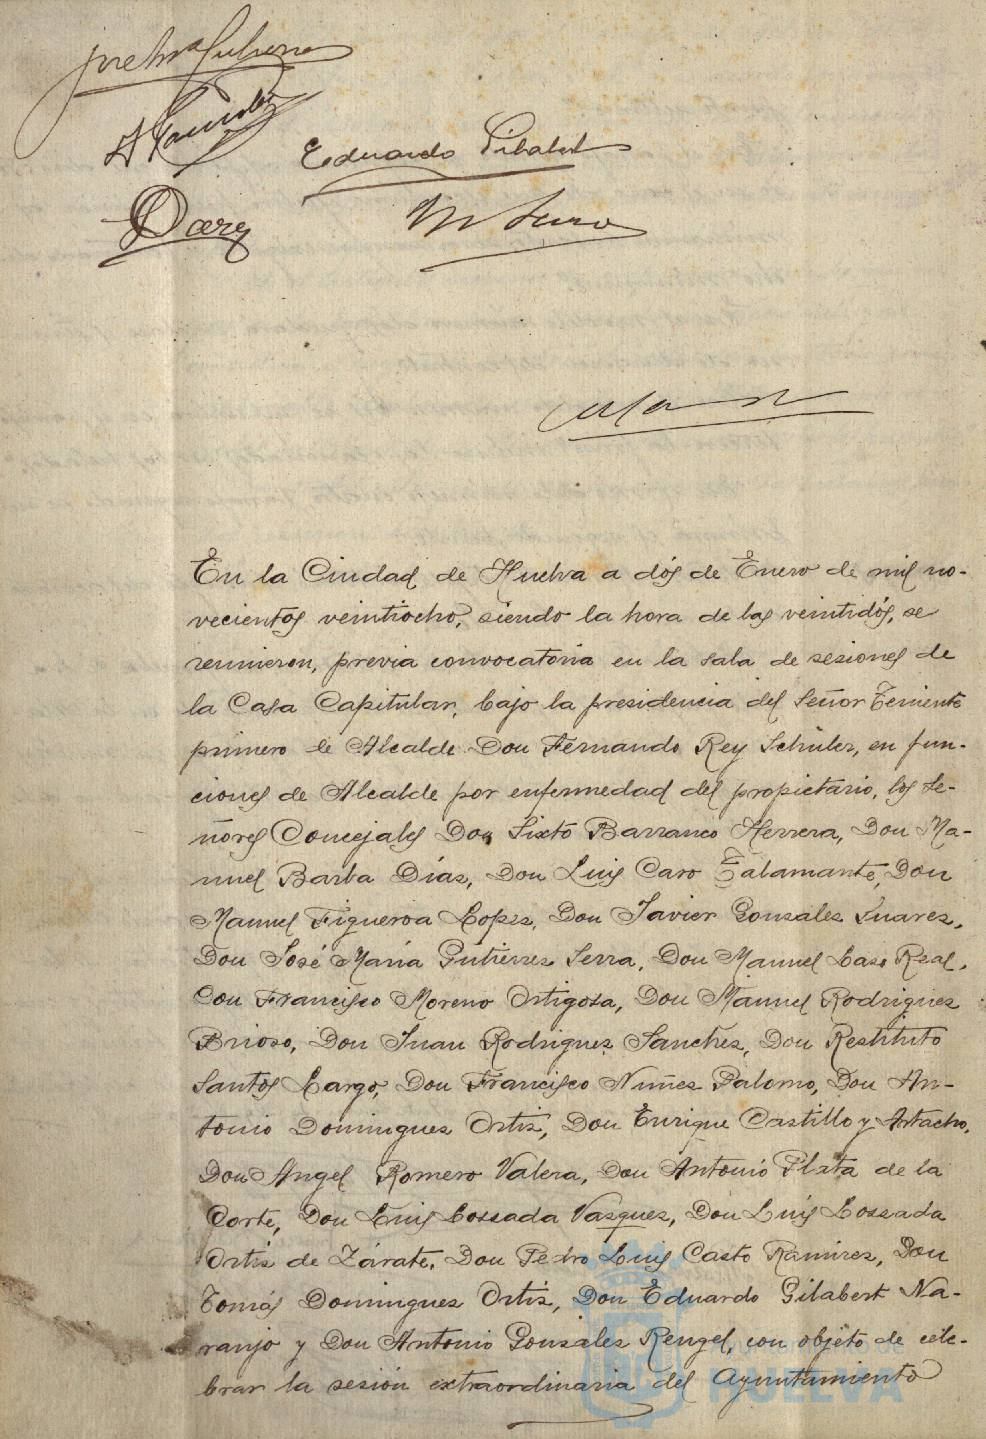 Eduardo Gilabert
En la Ciudad de Huelva a dós de Enero de mil no-
vecientos veintiocho, siendo la hora de las veintidós, se
reunieron, previa convocatoria en la sala de sesiones de
la Casa Capitular, bajo la presidencia del Señor Teniente
primero de Alcalde Don Fernando Rey Schüler, en fun-
ciones de Alcalde por enfermedad del propietario, los Se-
ñores Concejales Don Sixto Barranco Herrera, Don Ma-
nuel Barba Días, Don Luis Caro Talamante, Don
Manuel Figueroa Lopez, Don Javier Gonzales Suares,
Don José María Gutierres Serra, Don Manuel Laso Real,
Don Francisco Moreno Ortigosa, Don Manuel Rodrigues
Brioso, Don Juan Rodrigues Sanches, Don Restituto
Santos Largo, Don Francisco Nuñes Palomo, Don An-
tonio Domingues Ortis, Don Enrique Castillo y Artacho,
Don Angel Romero Valera, Don Antonio Plata de la
Corte, Don Luis Lossada Vasques, Don Luís Lossada
Ortis de Zárate, Don Pedro Luis Casto Ramires, Don
Tomás Domingues Ortis, Don Eduardo Gilabert Na-
ranjo y Don Antonio Gonzáles Rengel, con objeto de cele-
brar la sesión extraordinaria del Ayuntamiento
HUELVA